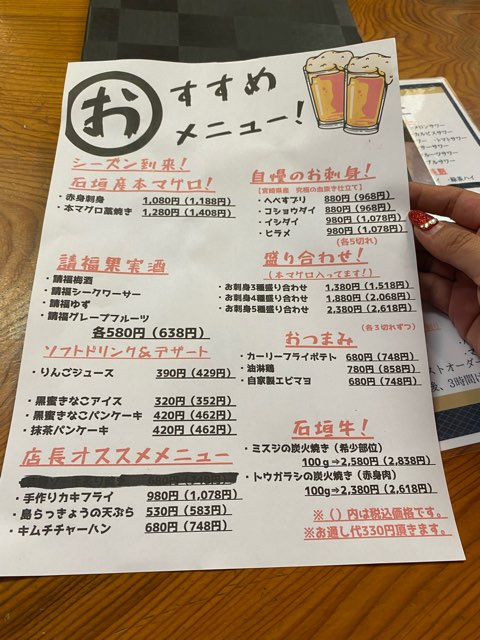 お すすめ
メニュー!
シーズン到来!
石垣産本マグロ!
・赤身刺身 1,080円(1,188円)
・本マグロ藁焼き 1,280円(1,408円)
請福果実酒
・請福梅酒
・請福シークワーサー
・請福ゆず
・請福グレープフルーツ
各580円(638円)
ソフトドリンク&デザート
・りんごジュース 390円(429円)
・黒蜜きなこアイス 320円(352円)
・黒蜜きなこパンケーキ 420円(462円)
・抹茶パンケーキ 420円(462円)
店長オススメメニュー
・手作りカキフライ 980円(1,078円)
・島らっきょうの天ぷら 530円(583円)
・キムチチャーハン 680円(748円)
自慢のお刺身!
【宮崎県産 究極の血抜き仕立て】
・へべすブリ 880円(968円)
・コショウダイ 880円(968円)
・イシダイ 980円(1,078円)
・ヒラメ 980円(1,078円)
(各5切れ)
盛り合わせ!
(本マグロ入ってます!)
・お刺身3種盛り合わせ 1,380円(1,518円)
・お刺身4種盛り合わせ 1,880円(2,068円)
・お刺身5種盛り合わせ 2,380円(2,618円)
(各3切れずつ)
おつまみ
・カーリーフライポテト 680円(748円)
・油淋鶏 780円(858円)
・自家製エビマヨ 680円(748円)
石垣牛!
・ミスジの炭火焼き(希少部位)
100g⇒2,580円(2,838円)
・トウガラシの炭火焼き(赤身肉)
100g⇒2,380円(2,618円)
※()内は税込価格です。
※お通し代330円頂きます。
・メロンサワー
カルピスサワー
・トマトサワー
ストオーダー
3時間